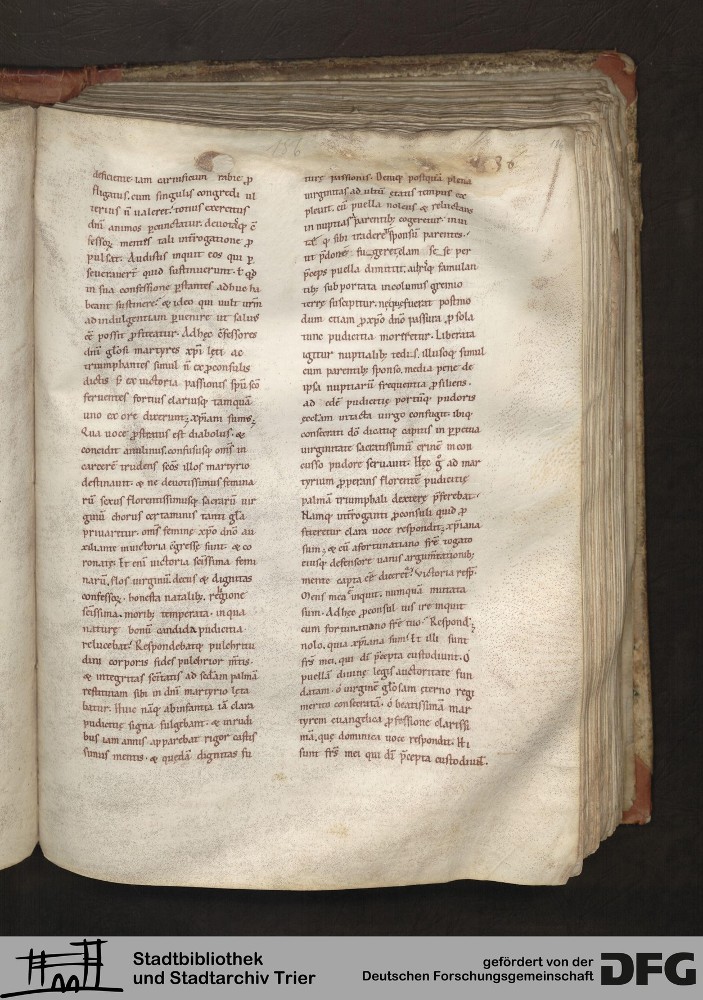 deficiente iam carnificum rabie ꝓ
fligatus. cum singulis congredi ul
terius n̄ ualeret. totius exercitus
dn̄i animos ꝑcunctatur. deuotasq; c̄
fessoꝝ mentes tali int̄rogatione ꝓ
pulsat. Audistis inquit eos qui ꝑ
seuerauer̄t quid sustinuerunt. ł qd̄
in sua confessione ꝑstantes adhuc ha
beant sustinere. & ideo qui uult ur̄m
ad indulgentiam ꝑuenire ut saluus
eē possit ꝓfiteatur. Ad hęc c̄fessores
dn̄i gl̄osi martyres xp̄i lęti ac
triumphantes simul n̄ ex ꝓconsulis
dictis sꝫ ex uictoria passionis sp̄u sc̄o
feruentes fortius clariusq; tamquā
uno ex ore dixerunt; xp̄iani sumus;
Qua uoce ꝓstratus est diabolus. &
concidit anulinus. confususq; om̄s in
carcerē trudens sc̄os illos martyrio
destinauit. & ne deuotissimus femina
rū sexus florentissimusq; sacrarū uir
ginū chorus certaminis tanti gl̄a
priuaretur. om̄s feminę xp̄o dn̄o au
xiliante inuictoria c̄gressę sunt. & co
ronatę. Et enī uictoria sc̄issima femi
narū. flos uirginū. decus & dignitas
confessoꝝ. honesta natalib; religione
sc̄issima. morib; temperata. in qua
naturę bonū candida pudicitia
relucebat. Respondebatq; pulchritu
dini corporis fides pulchrior m̄tis.
& integritas sc̄itatis ad sc̄dam palmā
restitutam sibi in dn̄i martyrio lęta
batur. Huic nāq; ab infantia iā clara
pudicitię signa fulgebant. & in rudi
bus iam annis apparebat rigor castis
simus mentis. & quędā dignitas fu
turę passionis. Deniq; postquā plena
uirginitas adultū etatis tempus ex
pleuit. cū puella nolens & reluctans
in nuptias parentib; cogeretur. inui
tęq; sibi traderent sponsū parentes.
ut p̄donē fugeret clam se sꝫ per
p̄ceps puella dimittit. aurisq; famulan
tib; subportata incolumis gremio
terrę suscipitur. neq; fuerat postmo
dum etiam ꝓ xp̄o dn̄o passura. ꝓ sola
tunc pudicitia moreretur. Liberata
igitur nuptialib; tedis. illusoq; simul
cum parentib; sponso. media pene de
ipsa nuptiarū frequentia ꝓsiliens.
ad edē pudicitię portūq; pudoris
ecclam intacta uirgo confugit. ibiq;
consecrati dō dicatiq; capitis in ꝑpetua
uirginitate sacratissimū crinē incon
cusso pudore seruauit. Hęc g̊ ad mar
tyrium ꝓperans florentē pudicitię
palmā triumphali dextere p̄ferebat.
Namq; int̄roganti ꝓconsuli quid ꝓ
fiteretur clara uoce respondit; xp̄iana
sum; & cū a fortunatiano fr̄e togato
eiusq; defensore uanis argum̄tationib;
mente capta eē diceret. Victoria resp̄.
Mens mea inquit. numquā mutata
sum. Ad hęc ꝓconsul. uis ire inquit
cum fortunatiano fr̄e tuo? Respond̄;
nolo. quia xp̄iana sum. Et illi sunt
fr̄s mei. qui dī p̄cepta custodiunt. O
puellā diuinę legis auctoritate fun
datam. ó uirginē gl̄osam ęterno regi
merito consecratā. ó beatissimā mar
tyrem euangelica ꝓfessione clarissi
mā. quę dominica uoce respondit. Hi
sunt fr̄s mei qui dī p̄cepta custodiunt.
Stadtbibliothek
und Stadtarchiv Trier
gefördert von der
Deutschen Forschungsgemeinschaft
DFG